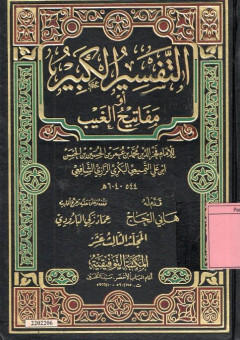 التفسير الكبير
أو
مفاتيح الغيب
للإمام فخر الدين محمد بن عمر بن الحسين بن الحسن
ابن علي التميمي البكري الرازي الشافعي
٥٤٤ - ٦٠٤ هـ
قدم له
هاني الحاج
حققه وعلق عليه وخرج أحاديثه
عماد زكي البارودي
المجلد الثالث عشر
المكتبة التوفيقية
2202206